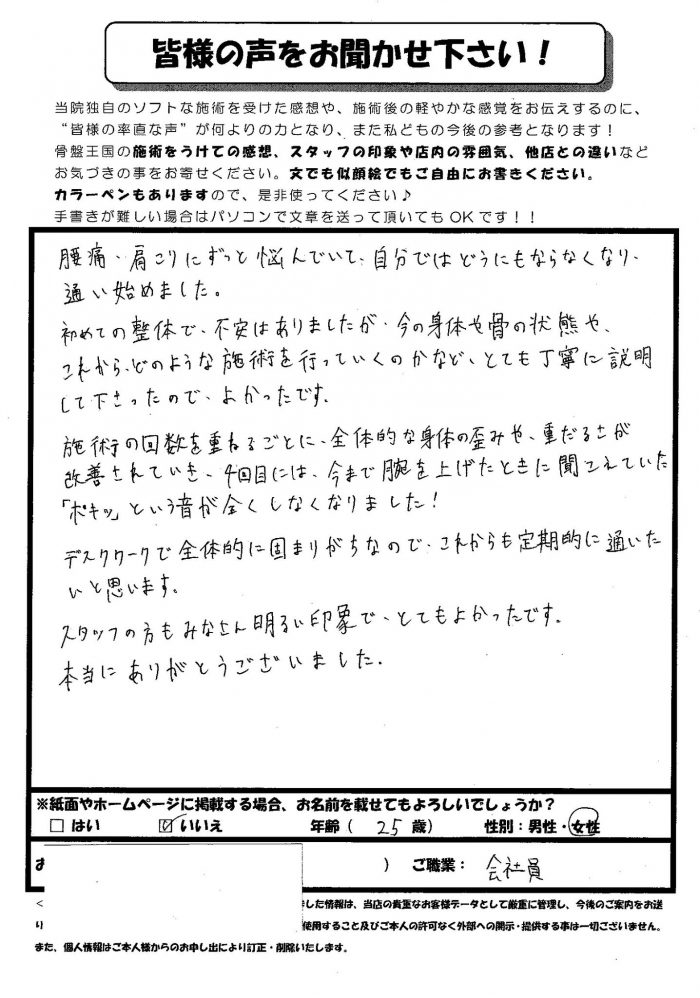 皆様の声をお聞かせ下さい！
当院独自のソフトな施術を受けた感想や、施術後の軽やかな感覚をお伝えするのに、
“皆様の率直な声”が何よりの力となり、また私どもの今後の参考となります！
骨盤王国の施術をうけての感想、スタッフの印象や店内の雰囲気、他店との違いなど
お気づきの事をお寄せください。文でも似顔絵でもご自由にお書きください。
カラーペンもありますので、是非使ってください♪
手書きが難しい場合はパソコンで文章を送って頂いてもOKです！！
腰痛・肩こりにずっと悩んでいて、自分ではどうにもならなくなり、
通い始めました。
初めての整体で、不安はありましたが、今の身体や骨の状態や、
これから、どのような施術を行っていくのかなど、とても丁寧に説明
して下さったので、よかったです。
施術の回数を重ねるごとに、全体的な身体の歪みや、重だるさが
改善されていき、4回目には、今まで腕を上げたときに聞こえていた
「ポキッ」という音が全くしなくなりました！
デスクワークで全体的に固まりがちなので、これからも定期的に通いた
いと思います。
スタッフの方もみなさん明るい印象で、とてもよかったです。
本当にありがとうございました.
※紙面やホームページに掲載する場合、お名前を載せてもよろしいでしょうか？
□ はい ☑ いいえ 年齢（ 25 歳） 性別：男性・女性
お ） ご職業： 会社員
した情報は、当店の貴重なお客様データとして厳重に管理し、今後のご案内をお送
り 使用すること及びご本人の許可なく外部への開示・提供する事は一切ございません。
また、個人情報はご本人様からのお申し出により訂正・削除いたします。